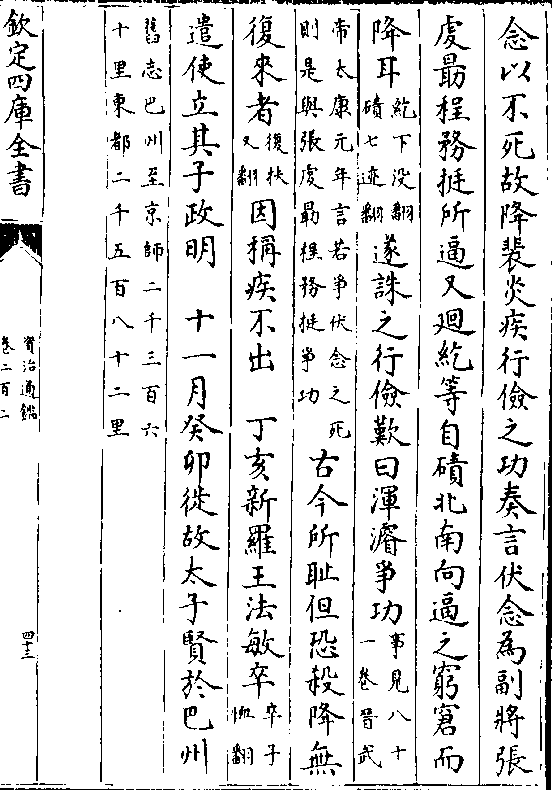 念以不死故降裴炎疾行儉之功奏言伏念為副將張
虔勗程務挺所逼又廻紇等自磧北南向逼之窮窘而
降耳紇下没翻磧七迹翻遂誅之行儉歎曰渾濬爭功事見八十一卷晉武
帝太康元年言若爭伏念之死則是與張虔勗程務挺爭功古今所恥但恐殺降無
復來者復扶又翻因稱疾不出　丁亥新羅王法敏卒卒子恤翻
遣使立其子政明　十一月癸卯徙故太子賢於巴州
舊志巴州至京師二千三百六十里東都二千五百八十二里
欽定四庫全書
資治通鑑
卷二百二
四十三